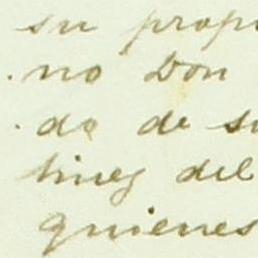 su propi
no Don
do de su
tines del
quienes